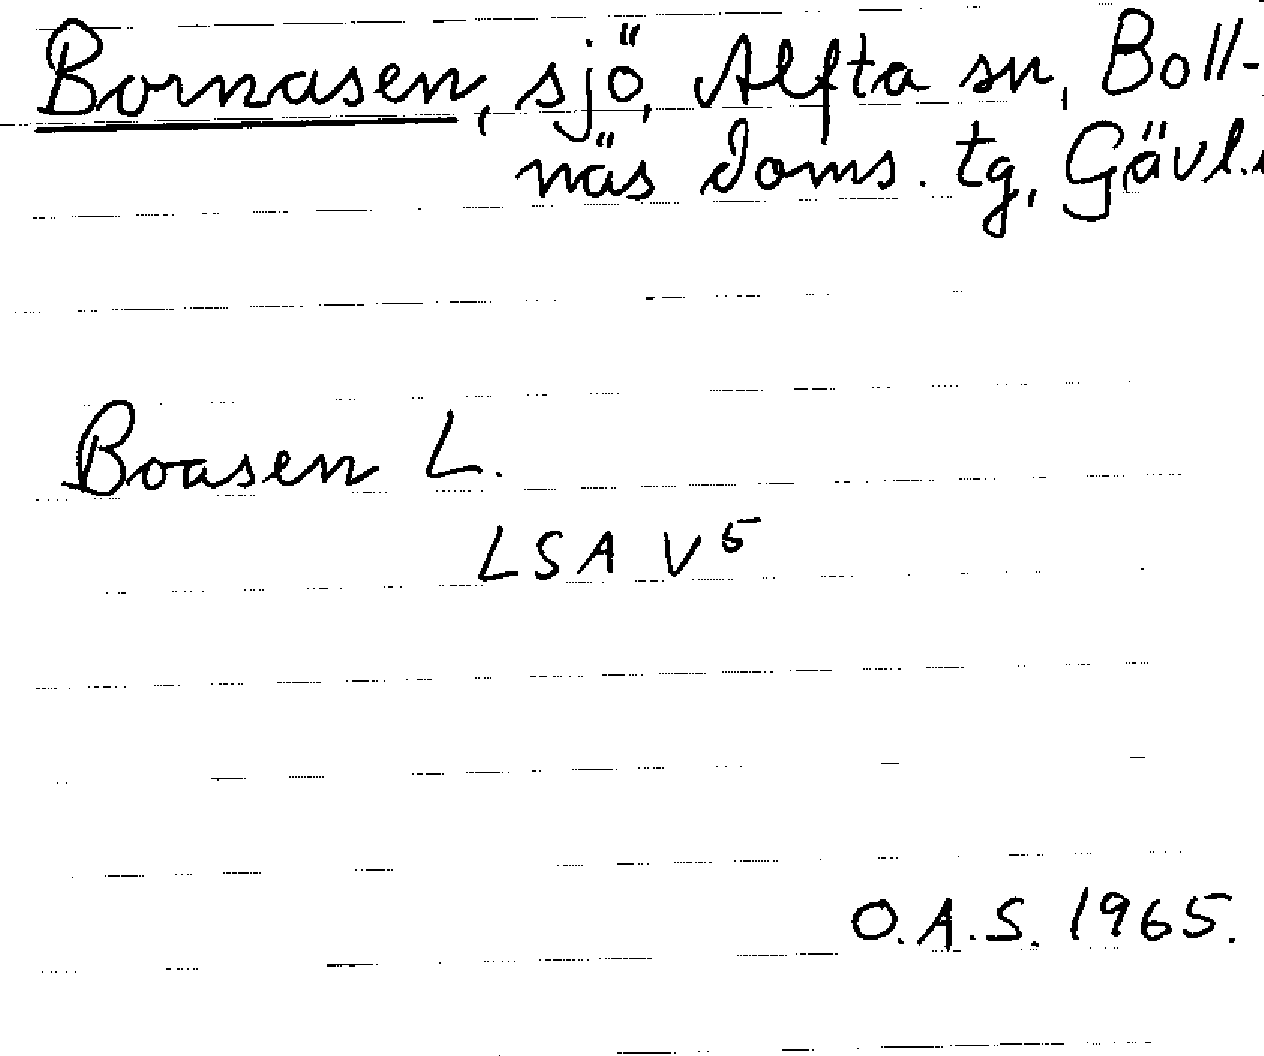 Bornasen, sjö, Alfta sn, Boll-
näs doms. tg, Gävl.
Boasen L.
LSA V5
O.A.S. 1965.